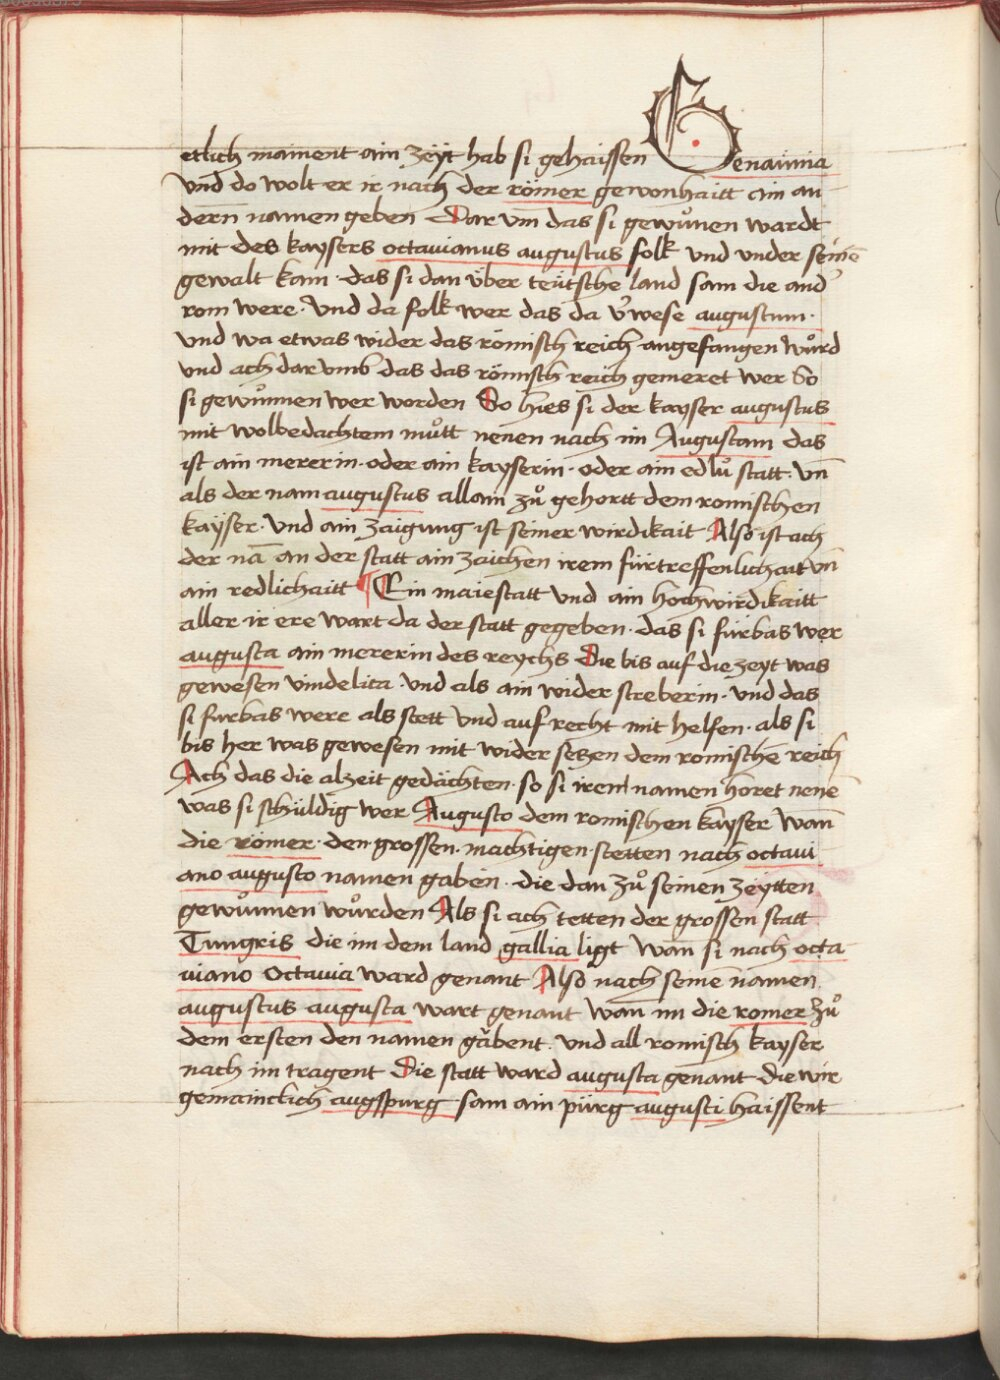 etlich mainent ain zeÿt hab si gehaissen Genaimia
vnd do wolt er ir nach der römer gewonhaitt ain an
dern̄ namen geben Dar vm̄ das si gewůnen wardt
mit des kaysers octavianus augustus folk vnd vnder seinē
gewalt kam · das si dan über teütsche land sam die and᷑
rom were · Vnd da folk wer das da v᷑wese augustum ·
vnd wa etwas wider das römisch reich angefangen wůrd
vnd ach dar vmb das das römisch reich gemeret wer So
si gewůnnen wer worden So hies si der kayser augustus
mit wolbedachtem můtt nenen nach im Augustam das
ist ain mererin · oder ain kayserin · oder ain edlů statt · vn̄
als der nam augustus allain zů gehortt dem romischen
kaÿser · Vnd ain zaigung ist seiner wirdikait Also ist ach
der nā an der statt ain zaichen irem fürtreffenlichait vn̄
ain redlichaitt ¶ Ein maiestatt vnd ain hochwirdikaitt
aller ir ere wart da der statt gegeben · das si fürbas wer
augusta ain mererin des reychs Die bis auf die zeyt was
gewesen vindelita · vnd als ain wider streberin · vnd das
si furbas were als stett vnd auf recht mit helfen · als si
bis her was gewesen mit wider setzen dem romischē reich
Ach das die alzeit gedächten · so si irem namen horet nenē
was si schüldig wer Augusto dem romischen kayser Wan̄
die römer · den grossen · machtigen · stetten nach octaui
ano augusto namen gaben · die dan zů seinen zeÿtten
gewůnnen wůrden Als si ach tetten der grossen statt
Tungris die im dem land gallia ligt Wan si nach octa
uiano Octauia ward genant Also nach seinē namen
augustus augusta wart genant Wan̄ im die romer zů
dem ersten den namen gäbent · vnd all romisch kayser
nach im tragent Die statt ward augusta genant die wir
gemainclich augspurg sam ain pürg augusti haissent